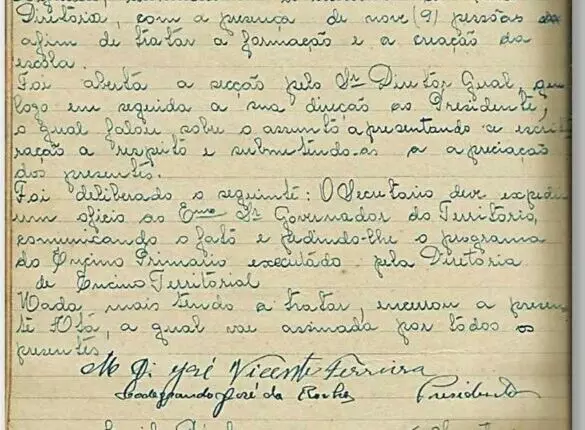 Diretória, com a presença de nove (9) pessôas
afim de tratar a formação e a criação da
escola.
Foi aberta a secção pelo Snr Diretôr Gual, que
logo em seguida a sua direção ao Presidente,
o qual falou sobre o assunto apresentando a escritu
ração a respeito e submetendo-as a apreciação
dos presentes.
Foi deliberado o seguinte: O Secretario deve expedir
um oficio ao Exmo Snr Governador do Territorio,
comunicando o fato e pedindo-lhe o programa
do Encino Primario executádo pela Diretoria
de Encino Territorial
Nada mais tendo a tratar, encerrou a presen
te Atá, a qual vae assinada por todos os
presentes
José Vicente Ferreira
José da Rocha Presidente